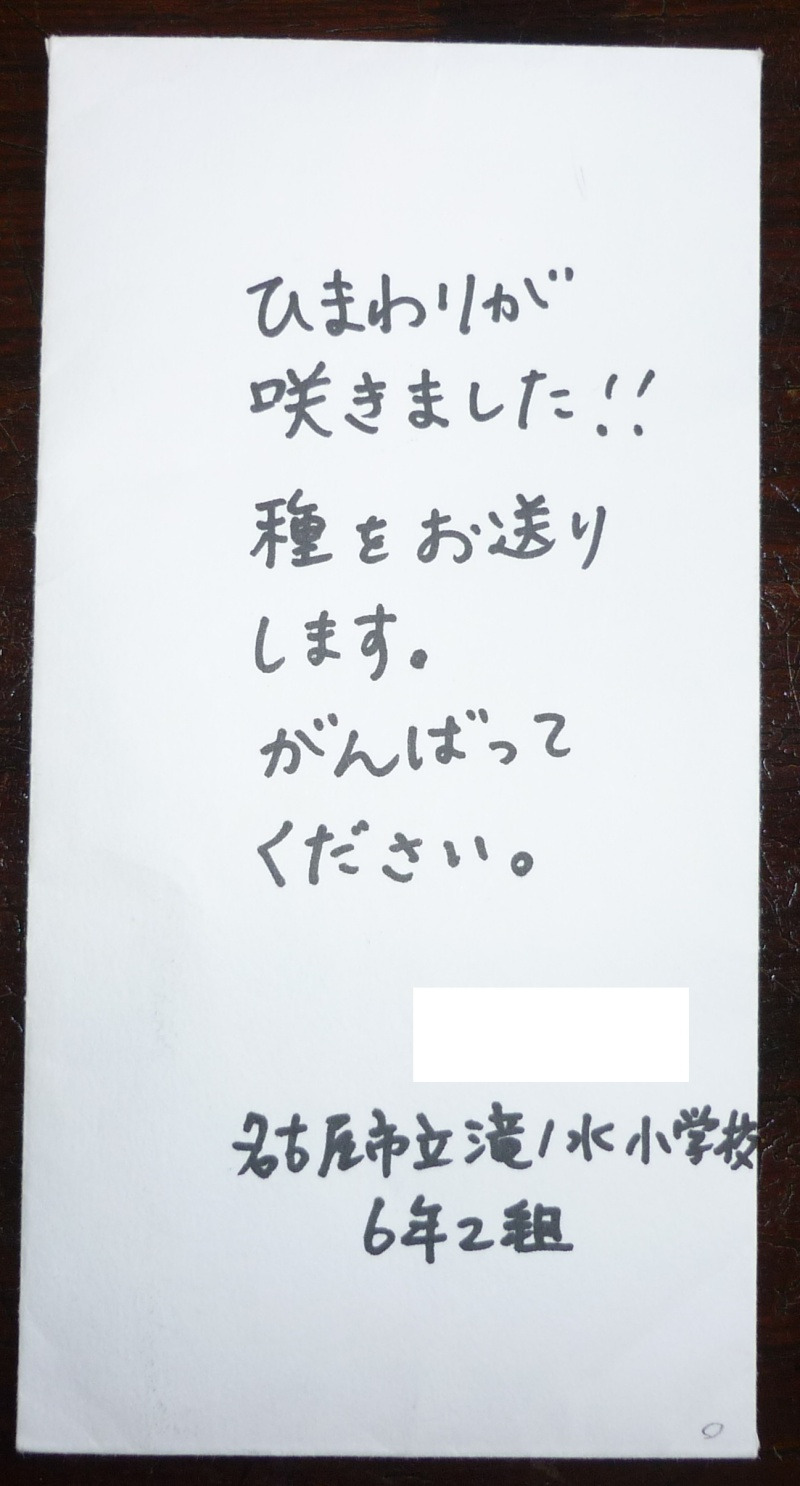 ひまわりが
咲きました!!
種をお送り
します。
がんばって
ください。
名古屋市立滝ノ水小学校
6年2組